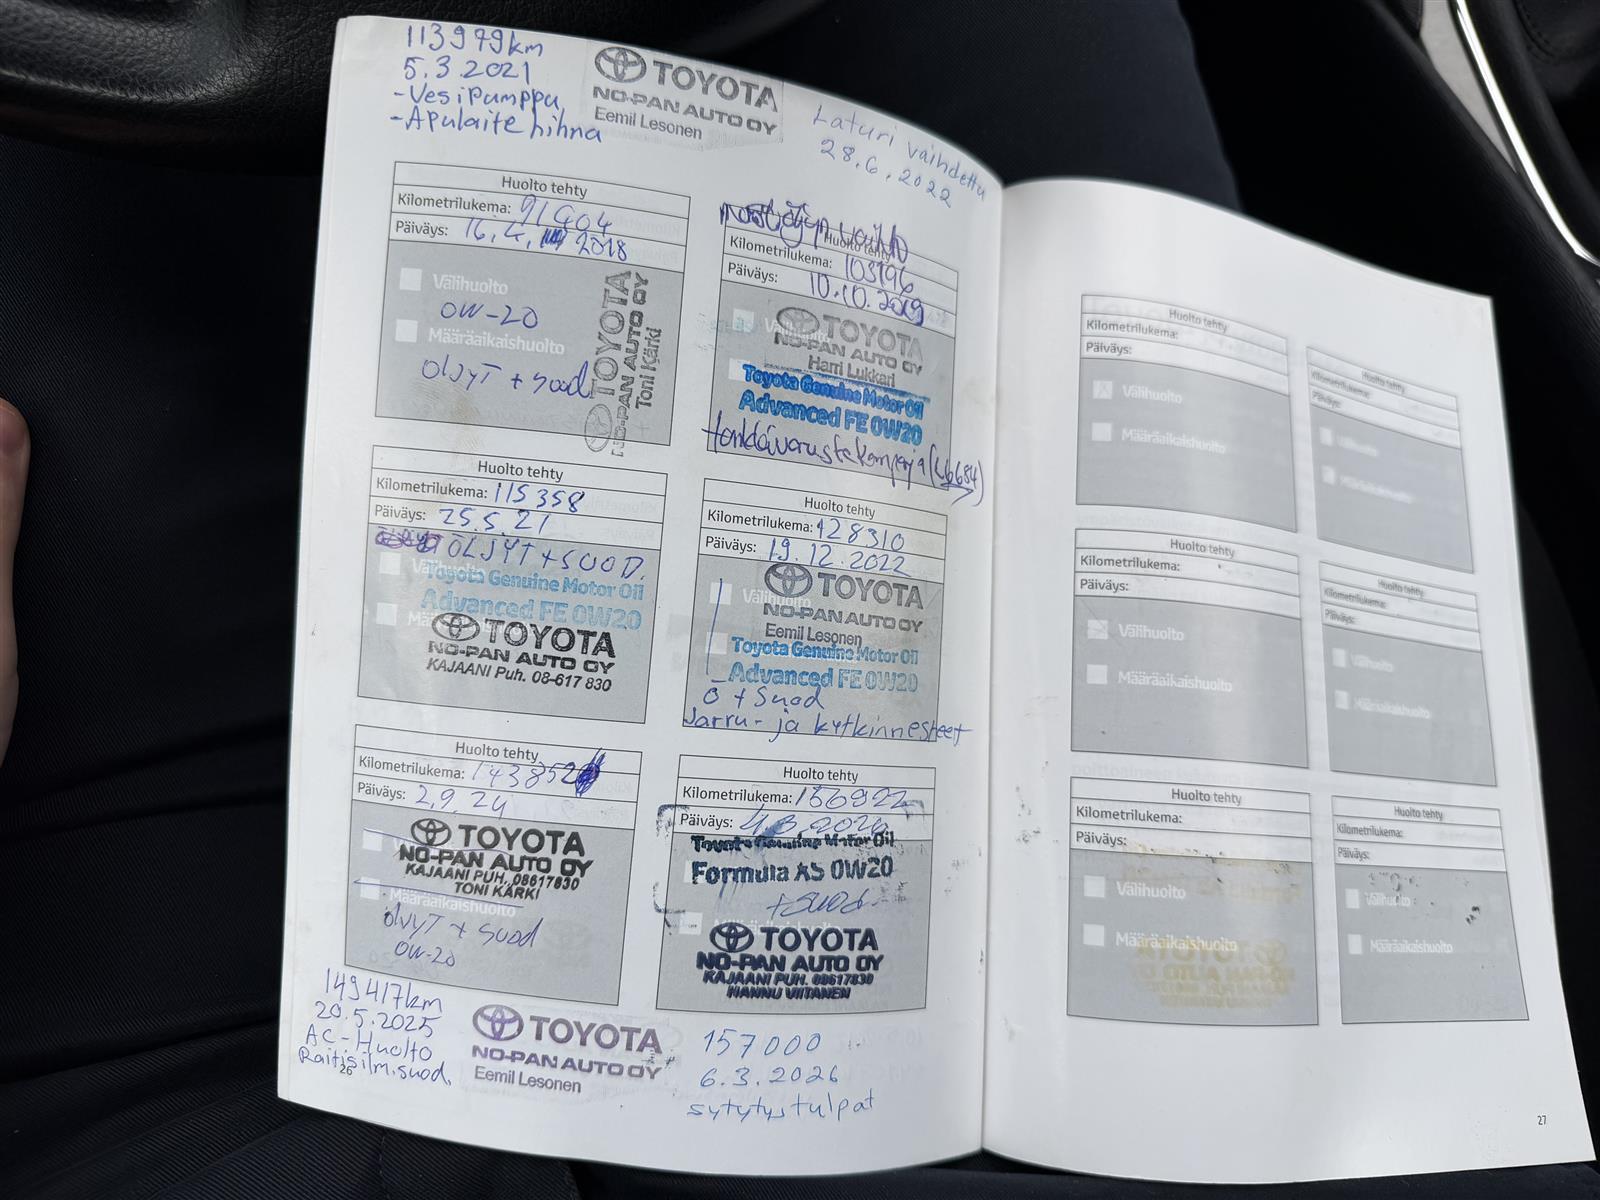 113979km
5.3.2021
-Vesipumppu
-Apulaite hihna
TOYOTA
NO-PAN AUTO OY
Eemil Lesonen
Laturi vaihdettu
28.6.2022
Huolto tehty
Kilometrilukema: 91904
Päiväys: 16.4. 2018
Välihuolto
0W-20
Määräaikaishuolto
ÖLJYT + SUOD
TOYOTA
NO-PAN AUTO OY
Toni Kärki
Huolto tehty
Kilometrilukema: 103196
Päiväys: 10.10.2019
TOYOTA
NO-PAN AUTO OY
Harri Lukkari
Toyota Genuine Motor Oil
Advanced FE 0W20
Huolto tehty
Kilometrilukema: 115358
Päiväys: 25.5.21
ÖLJYT + SUOD.
Toyota Genuine Motor Oil
Advanced FE 0W20
TOYOTA
NO-PAN AUTO OY
KAJAANI Puh. 08-617 830
Huolto tehty
Kilometrilukema: 128310
Päiväys: 19.12.2022
Välihuolto
TOYOTA
NO-PAN AUTO OY
Eemil Lesonen
Toyota Genuine Motor Oil
Advanced FE 0W20
Ö + Suod
Jarru- ja kytkinnesteet
Huolto tehty
Kilometrilukema: 143852
Päiväys: 2.9.24
TOYOTA
NO-PAN AUTO OY
KAJAANI PUH. 08617830
TONI KÄRKI
Määräaikaishuolto
ÖLJYT + SUOD
0W-20
Huolto tehty
Kilometrilukema: 156922
Päiväys: 4.3.2026
Toyota Genuine Motor Oil
Formula XS 0W20
+ SUOD.
Määräaikaishuolto
TOYOTA
NO-PAN AUTO OY
KAJAANI PUH. 08617830
HANNU VIITANEN
149417km
20.5.2025
AC-Huolto
Raitisilm.suod.
26
TOYOTA
NO-PAN AUTO OY
Eemil Lesonen
157000
6.3.2026
sytytystulpat
Huolto tehty
Kilometrilukema:
Päiväys:
Välihuolto
Määräaikaishuolto
Huolto tehty
Kilometrilukema:
Päiväys:
Välihuolto
Määräaikaishuolto
Huolto tehty
Kilometrilukema:
Päiväys:
Välihuolto
Määräaikaishuolto
Huolto tehty
Kilometrilukema:
Päiväys:
Välihuolto
Määräaikaishuolto
Huolto tehty
Kilometrilukema:
Päiväys:
Välihuolto
Määräaikaishuolto
Huolto tehty
Kilometrilukema:
Päiväys:
Välihuolto
Määräaikaishuolto
27